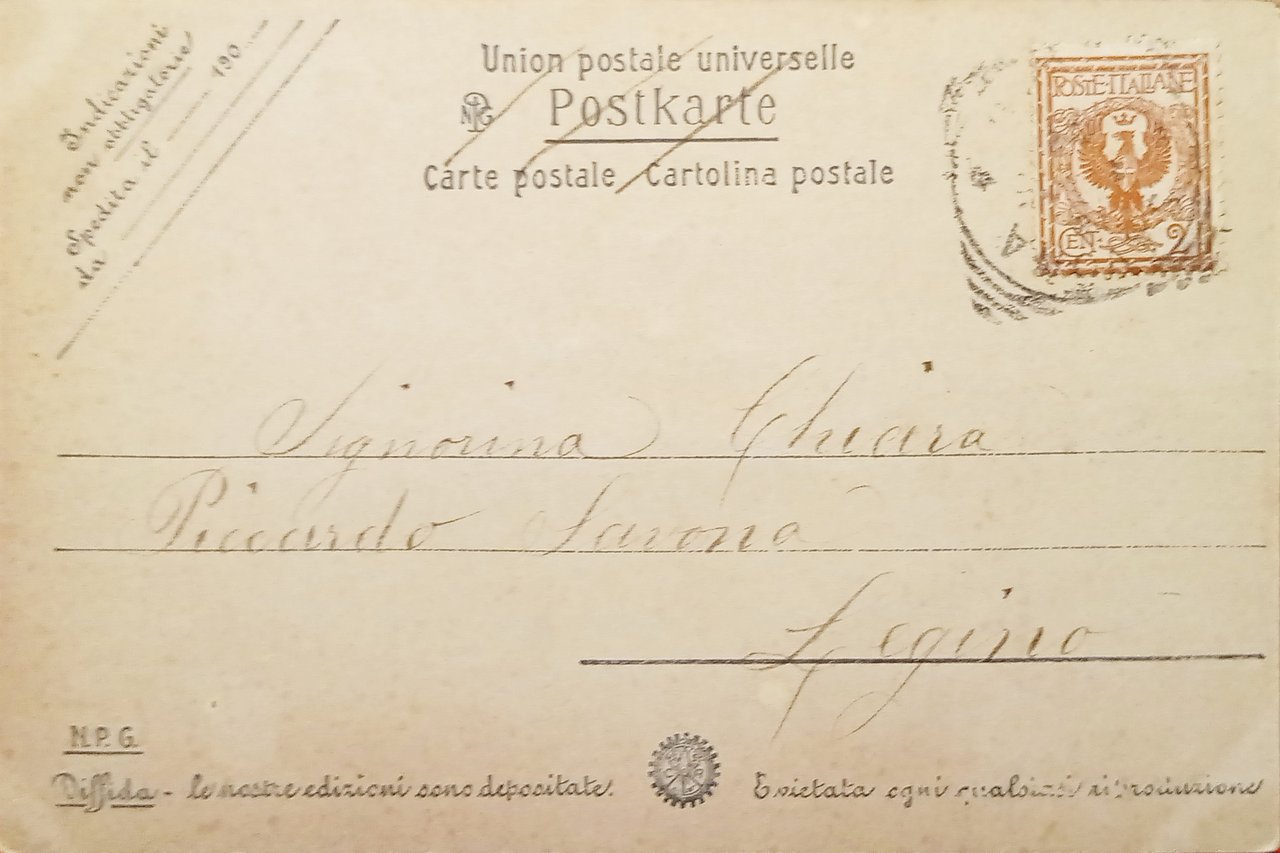 Indicazioni
non obbligatorie
Spedita il 190
da
Union postale universelle
NPG Postkarte
Carte postale Cartolina postale
POSTE·ITALIANE
CEN. 2
Signorina Chiara
Piccardo Savona
Legino
N.P.G.
Diffida - le nostre edizioni sono depositate. È vietata ogni qualsiasi riproduzione